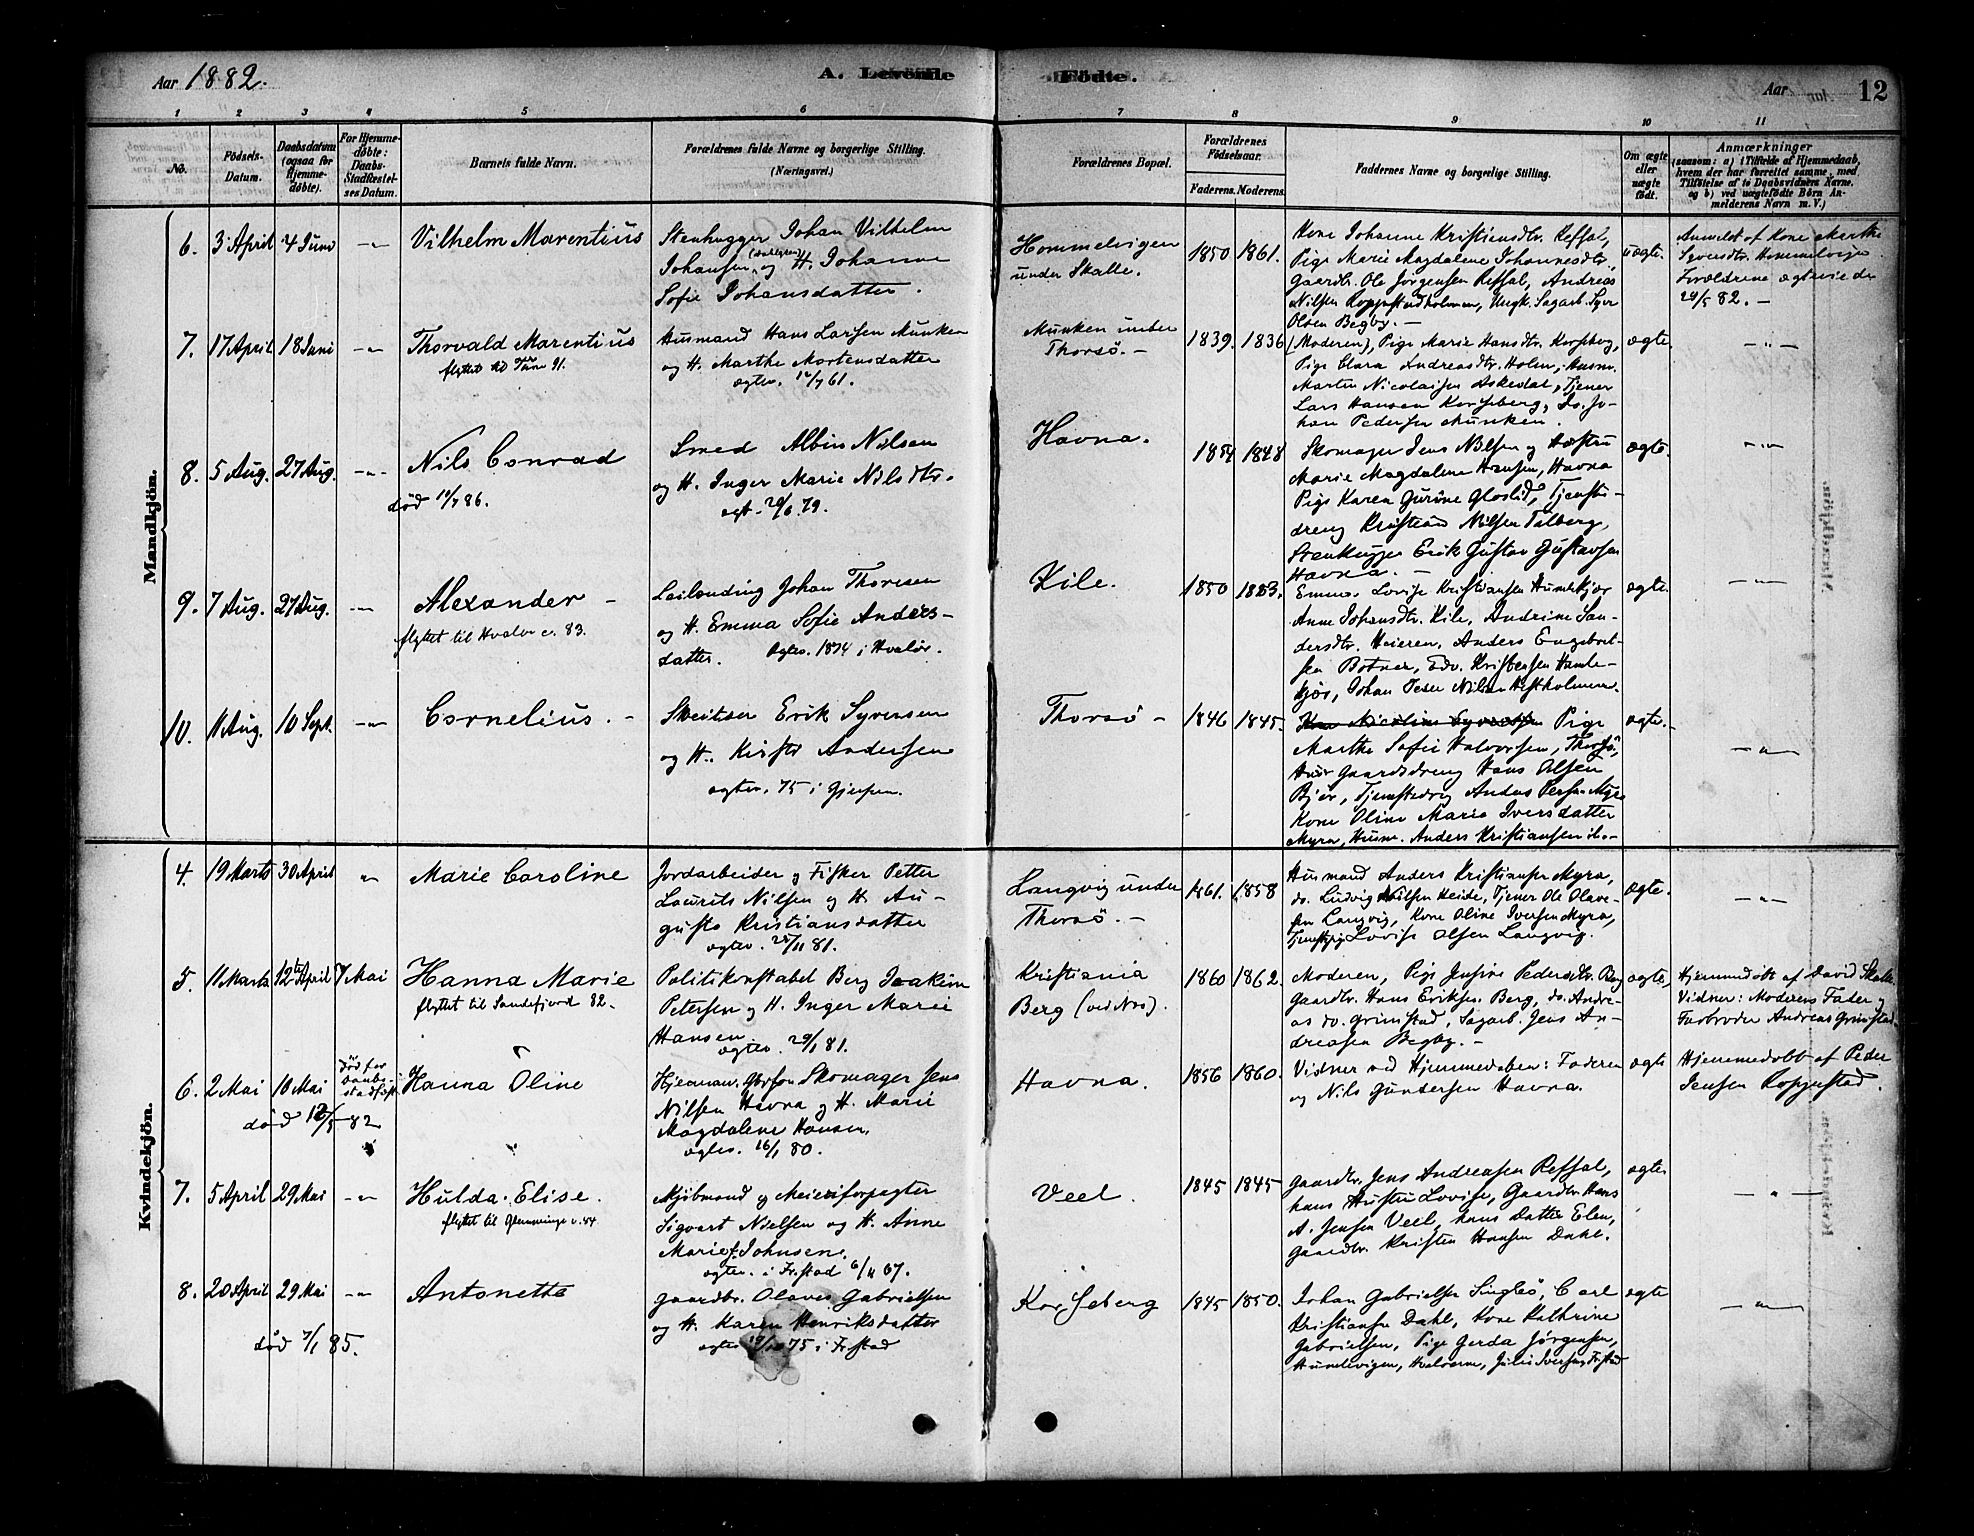 Aar 1882.
A. Levende
Födte.
Aar
12
1 2 3 4 5 6 7 8 9 10 11
No.
Födsels-
Datum.
Daabsdatum
(ogsaa for
Hjemme-
döbte).
For Hjemme-
döbte:
Daabs-
Stadfæstel-
ses Datum.
Barnets fulde Navn.
Forældrenes fulde Navne og borgerlige Stilling.
(Næringsvei.)
Forældrenes Bopæl.
Forældrenes
Födselsaar.
Faderens. Moderens.
Faddernes Navne og borgerlige Stilling.
Om ægte
eller
uægte
födt.
Anmærkninger
(saasom: a) i Tilfælde af Hjemmedaab,
hvem der har forrettet samme, med
Tilföielse af to Daabsvidners Navne,
og b) ved uægtefödte Börn An-
melderens Navn m. V.)
Mandkjön.
6. 3 April 4 Juni -"- Vilhelm Marentius
Stenhugger Johan Vilhelm
Johansen og H. Johanne
Sofie Johansdatter.
Hommelvigen
under Skalle.
1850 1861.
Kone Johanne Kristiansdtr. Reffal,
Pige Marie Magdalene Johannesdtr.
Gaardbr. Ole Jörgensen Reffal, Andreas
Nilsen Roppestadholmen, Ungk. Sagarb. Syver
Olsen Begby. —
uægte.
Anmeldt af Kone Marthe
Syversdtr. Hommelvigen.
Forældrene ægteviede
29/5 82. —
7. 17 April 18 Juni -"- Thorvald Marentius
flyttet til Tune 91.
Husmand Hans Larsen Munken
og H. Marthe Mortensdatter
ægtev. 12/7 61.
Munken under
Thorsö. —
1839. 1836
(Moderen), Pige Marie Hansdtr. Korseberg,
Pige Clara Andreasdtr. Holm, Husm.
Martin Nicolaisen Askedal, Tjener
Lars Hansen Korseberg, Do. Jo-
han Pedersen Munken.
ægte.
-"-
8. 5 Aug. 27 Aug. -"- Nils Conrad
död 19/7 86.
Smed Albin Nilsen
og H. Inger Marie Nilsdtr.
ægt. 29/6 79.
Havna.
1854 1848
Skomager Jens Nilsen og Hustru
Marie Magdalene Hansen, Havna
Pige Karen Gurine Gloslid, Tjeneste-
dreng Kristian Nilsen Tilberg,
Stenhugger Erik Gustav Gustavsen
Havna. —
ægte.
-"-
9. 7 Aug. 27 Aug. -"- Alexander —
flyttet til Hvaler c. 83.
Leilænding Johan Thoresen
og H. Emma Sofie Anders-
datter. Ægtev. 1874 i Hvalör.
Kile.
1850 1853.
Emma Lovise Kristiansen Humlekjær
Anne Johansdtr. Kile, Andrine San-
dersdtr. Heieren, Anders Engebret-
sen Botner, Edv. Kristensen Humle-
kjær, Johan Peder Nilsen Hestholmen.
ægte.
-"-
10. 11 Aug. 10 Sept. -"- Cornelius. —
Sveitser Erik Syversen
og H. Kirsti Andersen
ægtev. 75 i Gjerpen.
Thorsö —
1846 1845.
Kone Nicoline Syversen Pige
Marthe Sofie Halvorsen, Thorsö,
Gaardsdreng Hans Olsen
Björ, Tjenestedreng Anders Persen Myra
Kone Oline Marie Iversdatter
Myra, Husm. Anders Kristiansen ib.
ægte.
-"-
Kvindekjön.
4. 19 Marts 30 April " Marie Caroline
Jordarbeider og Fisker Petter
Laurits Nilsen og H. Au-
gusta Kristiansdatter
ægtev. 28/11 81.
Langvig under
Thorsö. —
1861. 1858
Husmand Anders Kristiansen Myra,
do. Ludvig Nilsen Heide, Tjener Ole Olave-
sen Langvig, Kone Oline Iversen Myra,
Tjenestepige Lovise Olsen Langvig.
ægte.
-"-
5. 11 Marts 12te April 7 Mai Hanna Marie
flyttet til Sandefjord 82.
Politikonstabel Berg Joakim
Petersen og H. Inger Marie
Hansen
ægtev. 29/1 81.
Kristiania
Berg (ved Nos).
1860 1862.
Moderen, Pige Jensine Pedersdtr. Berg
Gaardbr. Hans Eriksen Berg, do. Andre-
as do. Grimstad, Sagarb. Jens An-
dreasen Begby. —
ægte,
Hjemmedöbt af David Skalle.
Vidner: Moderens Fader og
Farbroder Andreas Grimstad.
6. 2 Mai 10 Mai
död för
Daabs-
stadfæst.
Hanna Oline
död 12/5 82
Skomager Jens
Nilsen Havna og H. Marie
Magdalene Hansen,
ægtev. 16/1 80.
Havna.
1856 1860.
Vidner ved Hjemmedaaben: Faderen
og Nils Gundersen Havna.
ægte
Hjemmedöbt af Peder
Jensen Roppestad.
7. 5 April 29 Mai -"- Hulda Elise.
flyttet til Glemminge c. 84
Kjöbmand og Meieriforpagter
Sigvart Nielsen og H. Anne
Marie f. Johnsen.
ægtev. i Fr.stad 6/11 67.
Veel.
1845 1845
Gaardbr. Jens Andreasen Reffal,
hans Hustru Lovise, Gaardbr. Hans
A. Jensen Veel, hans Datter Elen,
Gaardbr. Kristen Hansen Dahl.
ægte
-"-
8. 20 April 29 Mai -"- Antonette
död 7/1 85.
Gaardbr. Olaves Gabrielsen
og H. Karen Henriksdatter
ægtev 19/10 75 i Fr.stad
Korseberg
1845 1850.
Johan Gabrielsen Singlö, Carl
Kristiansen Dahl, Kone Kathrine
Gabrielsen, Pige Gerda Jörgensen,
Humlevigen, Hvalerne, Julie Iversen, Fr.stad
ægte
-"-